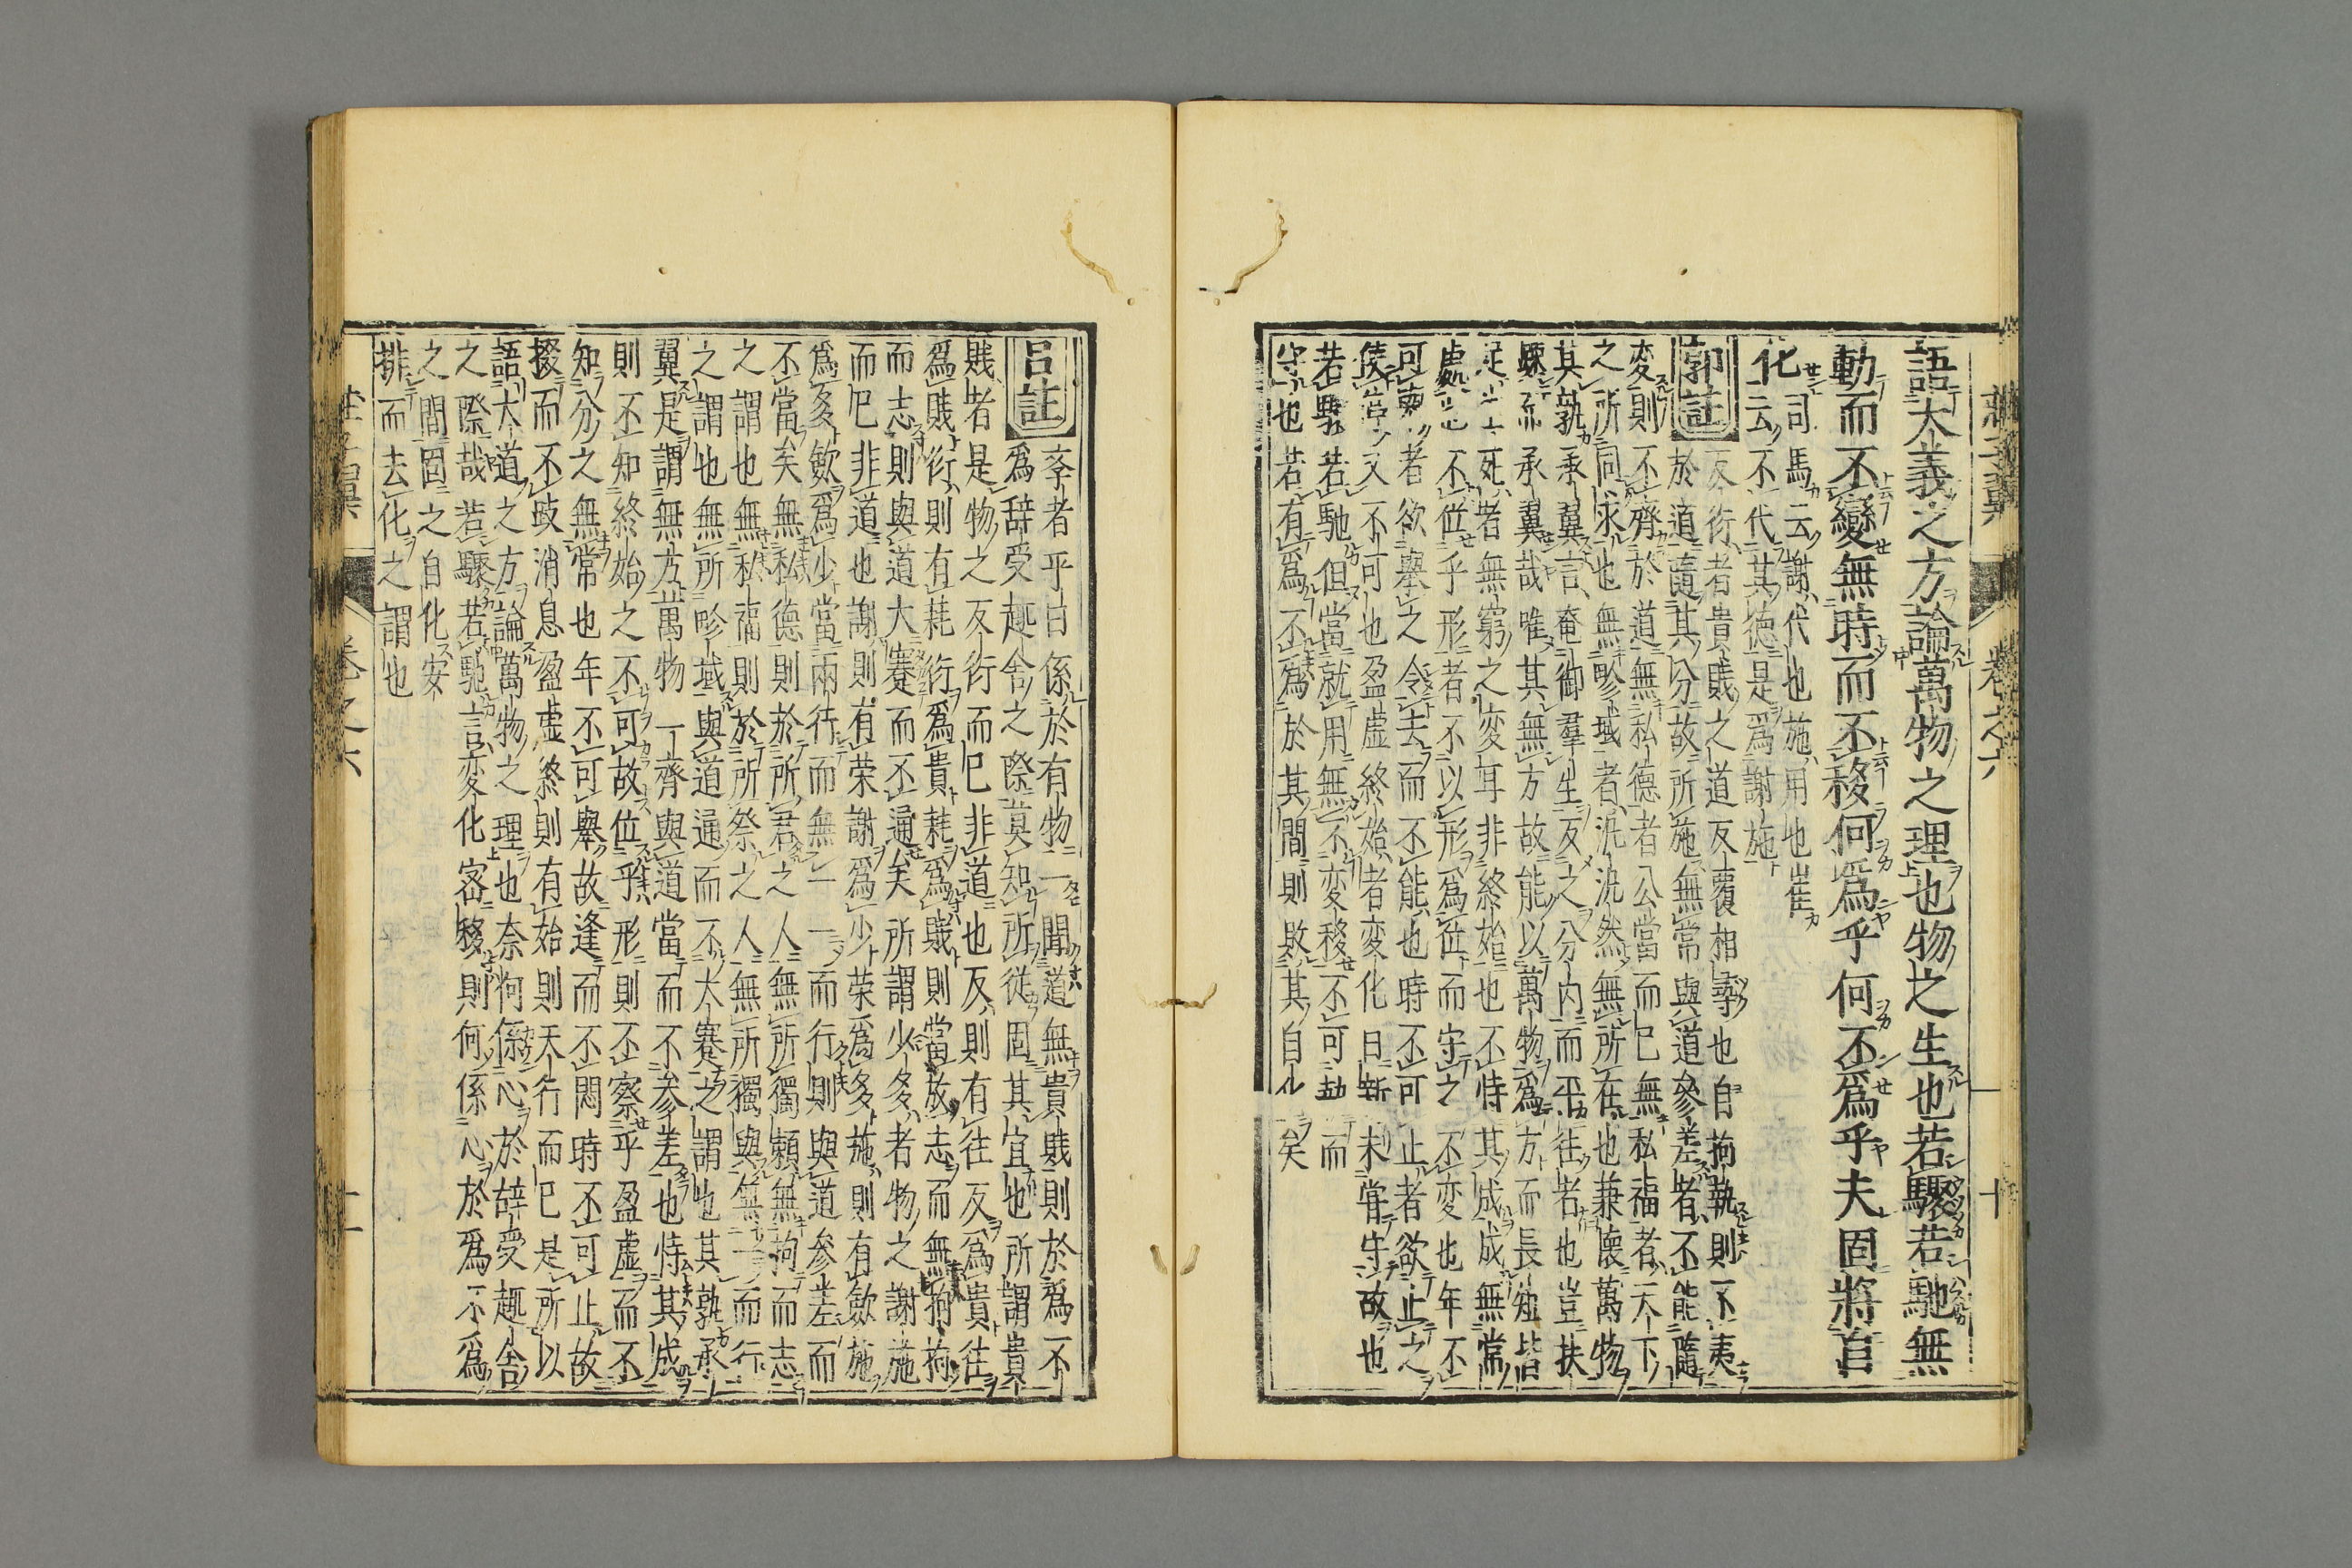 語大義之方論萬物之理也物之生也若驟若馳無
動而不變無時而不移何爲乎何不爲乎夫固將自
化司馬云謝代也施用也崔
云不代其德是爲謝施
郭註反衍者貴賤之道反覆相尋也自拘執則不夷
於道隨其分故所施無常與道參差者不能隨
変則不齊於道無私德者公當而已無私福者天下
之所同求也無畛域者汎汎然無所在也兼懷萬物
其孰承翼言奄御羣生反之分内而平往者也豈扶
疎而承翼哉唯其無方故能以萬物爲方而長短皆
足 死者無窮之変耳非終始也不恃其成成無常
處 不位乎形者不以形爲位而守之不変也年不
可 者欲舉之令去而不能也時不可止者欲止之
使 又不可也盈虚終始者変化日新未甞守故也
若驟若馳但當就用無不変移不可執而
守也若有爲不爲於其間則敗其自 矣
莊子翼 卷之六 十
呂註李者乎曰係於有物一聞道無貴賤則於爲不
爲辞受趣舎之際莫知所從固其宜也所謂貴
賤者是物之反衍而已非道也反則有往反爲貴往
爲賤衍則有耗衍爲貴耗爲賤則當放志而無拘拘
而志則與道大蹇而不通矣所謂少多者物之謝施
而已非道也謝則有荣謝爲少荣爲多施則有斂施
爲多斂爲少當兩行而無一一而行則與道参差而
不當矣無私德則於所君之人無所獨頼無拘而志
之謂也無私福則於所祭之人無所獨與無一而行
之謂也無所畛域與道通而不大蹇之謂也其孰承
翼是謂無方萬物一齊與道當而不参差也恃其成
則不知終始之不可故位乎形則不察乎盈虚而不
知分之無常也年不可舉故逢而不悶時不可止故
掇而不跂消息盈虚終則有始則天行而已是所以
語大道之方論萬物之理也奈何係心於辞受趣舎
之際哉若驟若馳言変化宻移則何係心於爲不爲
之間固之自化安
排而去化之謂也
莊子翼 卷之六 十一